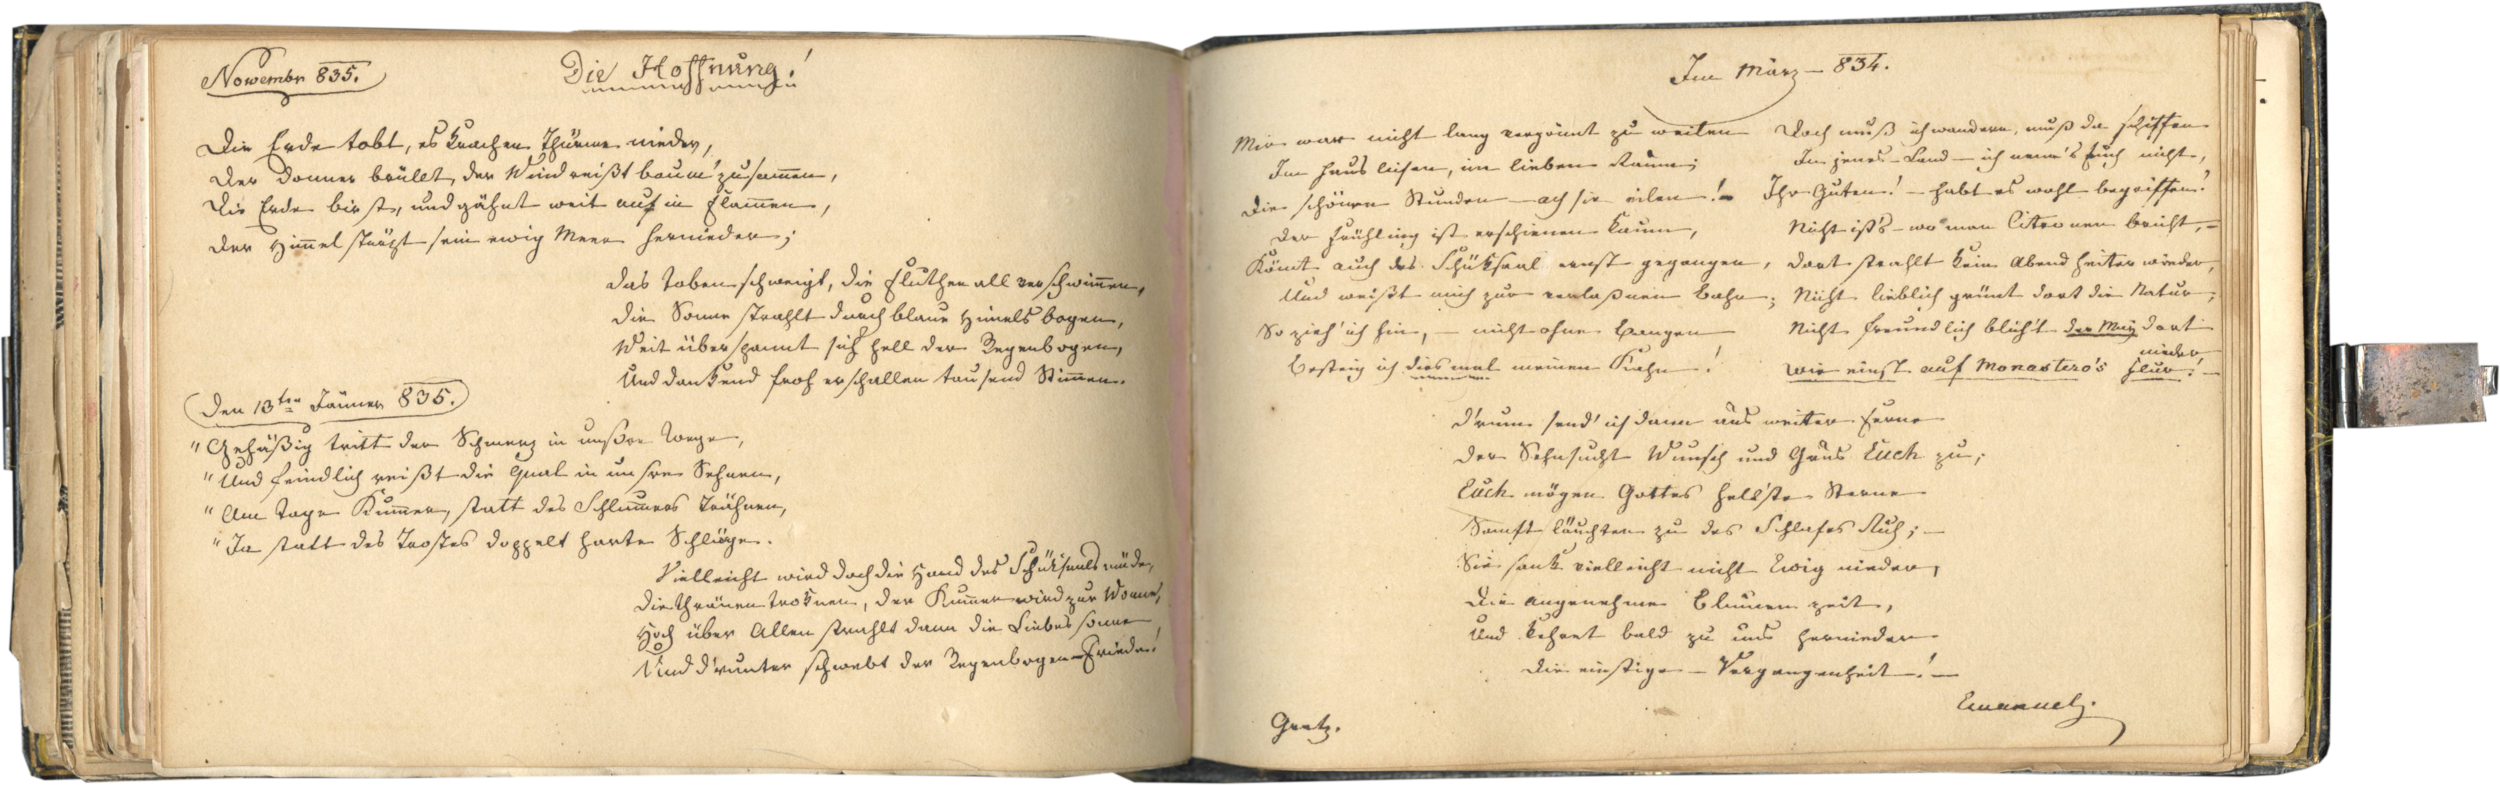 Nowembr 835.
Die Hoffnung!
Die Erde tobt, es krachen Thürme nieder,
Der Donner brüllet, der Wind reißt bäum' zusam̄en,
Die Erde birst, und gähnt weit auf in Flam̄en,
Der Him̄el stürzt sein ewig Meer hernieder;
Das toben schweigt, die Fluthen all verschwim̄en,
Die Sonne strahlt durch blaue Him̄els bogen,
Weit überspannt sich hell der Regenbogen,
Und dankend froh erschallen tausend Stim̄en.
Den 13ten Jänner 835.
"Gehäßig tritt der Schmerz in unsre Wege,
"Und feindlich reißt die Qual in unsre Sehnen,
"Am Tage Kum̄er, statt des Schlum̄ers Trähnen,
"Ja statt des Trostes doppelt harte Schläge.
Vielleicht wird doch die Hand des Schüksaals müde,
Die thränen troknen, der Kum̄er wird zur Wonne,
Hoch über Allen strahlt dann die Liebes sonne
Und d'runter schwebt der Regenbogen-Friede!
Im März – 834.
Mir war nicht lang vergönnt zu weilen
Im Haus leisen, im lieben Raum;
Die schönen Stunden – ach sie eilen! –
Der Frühling ist erschienen kaum,
Köm̄t auch das Schüksaal ernst gegangen,
Und weißt mich zur verlaßnen Bahn;
So zieh' ich hin, – nicht ohne Bangen
Besteig ich diesmal meinen Kahn!
Doch muß ich wandern, muß da schiffen
In jenes – Land – ich nenn's Euch nicht,
Ihr Guten! – habt es wohl begriffen!
Nicht ist's – wo man Citronen bricht, –
Dort strahlt kein Abend heiter wieder,
Nicht lieblich grünt dort die Natur,
Nicht freundlich blüh't der May dort
nieder
Wie einst auf Monastero's Flur! –
D'rum send' ich dann aus weiter Ferne
Der Sehnsucht Wunsch und Grus Euch zu;
Euch mögen Gottes hell'ste Sterne
Sanft läuchten zu des Schlafes Ruh; –
Sie sank vielleicht nicht Ewig nieder,
Die angenehme Blumen zeit,
Und kehret bald zu uns hernieder
Die einstige – Vergangenheit! –
Emanuel.
Gratz.